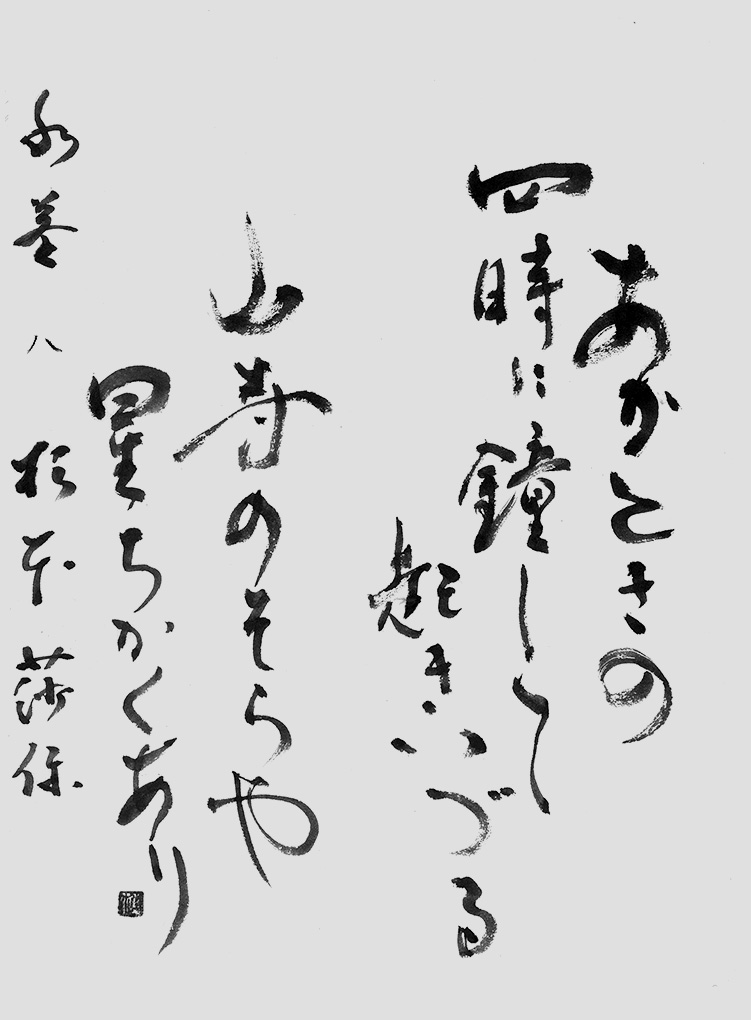 あかときの
四時に鐘して
起きいづる
山寺のそらや
星ちかくあり
永基 八 杉本 莎保